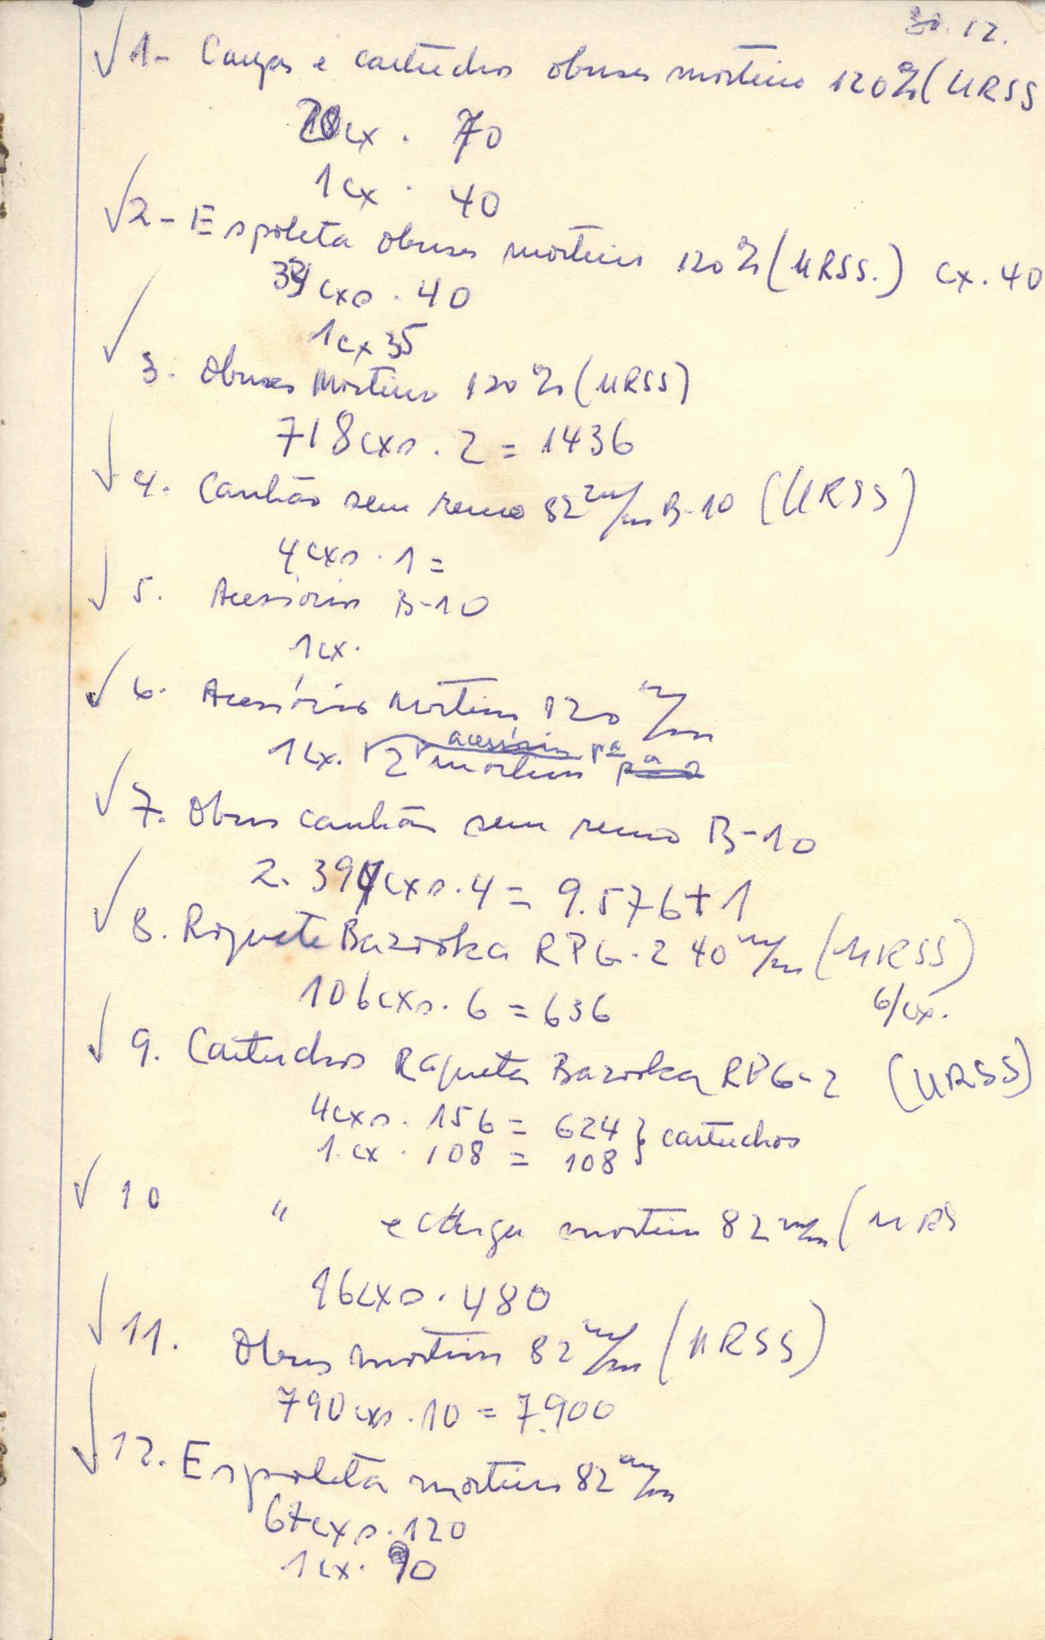 30.12.
√ 1- Cargas e cartuchos obuses morteiro 120 m/m (URSS
20cx . 70
1cx . 40
√ 2- Espoleta obuses morteiro 120 m/m (URSS.) cx. 40
34cxs . 40
1cx 35
√ 3. Obuses Morteiro 120 m/m (URSS)
718cxs . 2 = 1436
√ 4. Canhão sem recuo 82 m/m B-10 (URSS)
4cxs . 1 =
√ 5. Acessórios B-10
1cx.
√ 6. Acessórios Morteiro 120 m/m
1cx. 2 morteiros
√ 7. Obus canhão sem recuo B-10
2.394cxs . 4 = 9.576 + 1
√ 8. Roquete Bazooka RPG-2 40 m/m (URSS)
106cxs . 6 = 636 6/cx.
√ 9. Cartuchos Roquete Bazooka RPG-2 (URSS)
4cxs . 156 = 624 } cartuchos
1.cx . 108 = 108
√ 10 " e carga morteiro 82 m/m (URS
16cxs . 480
√ 11. Obus morteiro 82 m/m (URSS)
790cxs . 10 = 7.900
√ 12. Espoleta morteiro 82 m/m
67cxs . 120
1cx . 90